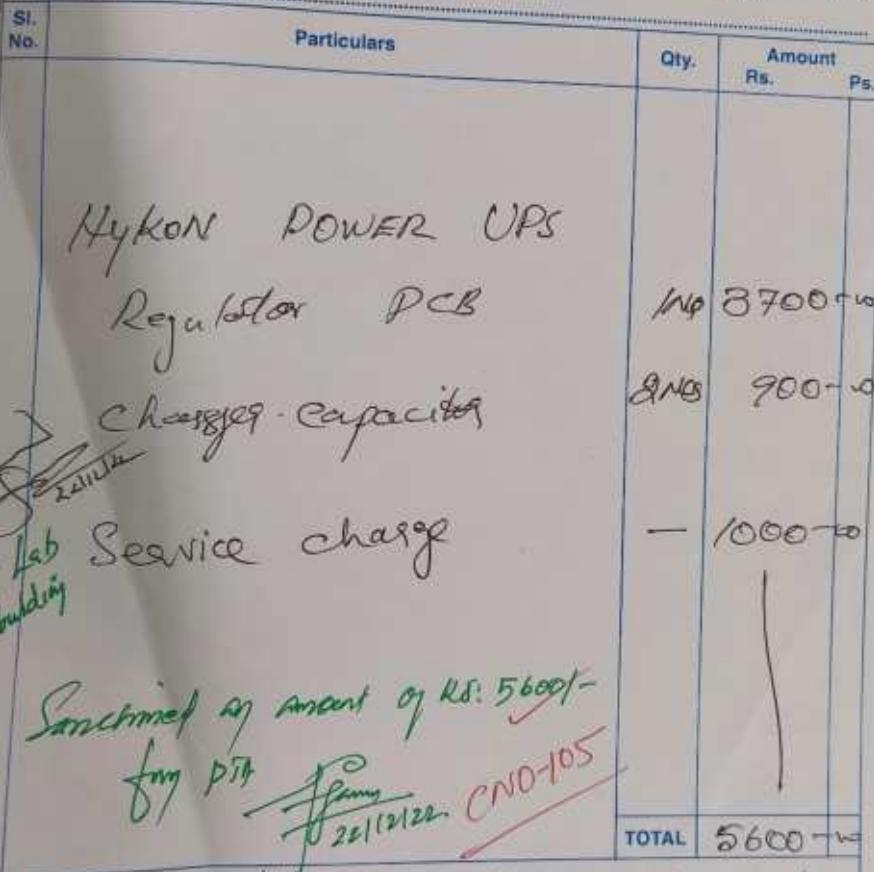 Sl. No. Particulars Qty. Amount Rs. Ps.
Hykon POWER UPS
Regulator PCB 1No 3700-00
Charger capacitor 2Nos 900-00
22/12/22
Service charge — 1000-00
Lab
building
Sanctioned an amount of Rs: 5600/-
from PTA
22/12/22. CNO-105
TOTAL 5600-00